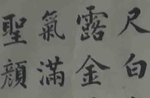 尺白
露金
氣滿
聖顏